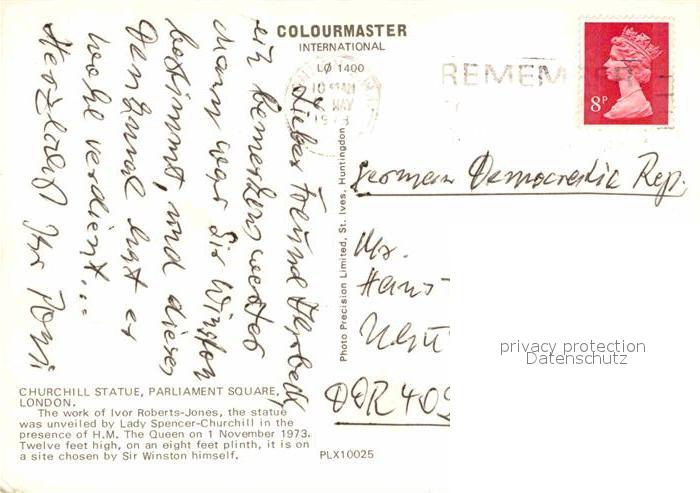 COLOURMASTER
INTERNATIONAL
LØ 1400
10
MAY
REMEM
8P
Lieber Freund
ein bemerkenswerter
Mann war Sir Winston
bestimmt, und dieses
Denkmal hat er
wohl verdient...
Herzlichst Ihr
Photo Precision Limited, St. Ives, Huntingdon
German Democratic Rep.
Mr.
Hans
DDR 409
privacy protection
Datenschutz
CHURCHILL STATUE, PARLIAMENT SQUARE,
LONDON.
The work of Ivor Roberts-Jones, the statue
was unveiled by Lady Spencer-Churchill in the
presence of H.M. The Queen on 1 November 1973.
Twelve feet high, on an eight feet plinth, it is on
a site chosen by Sir Winston himself.
PLX10025